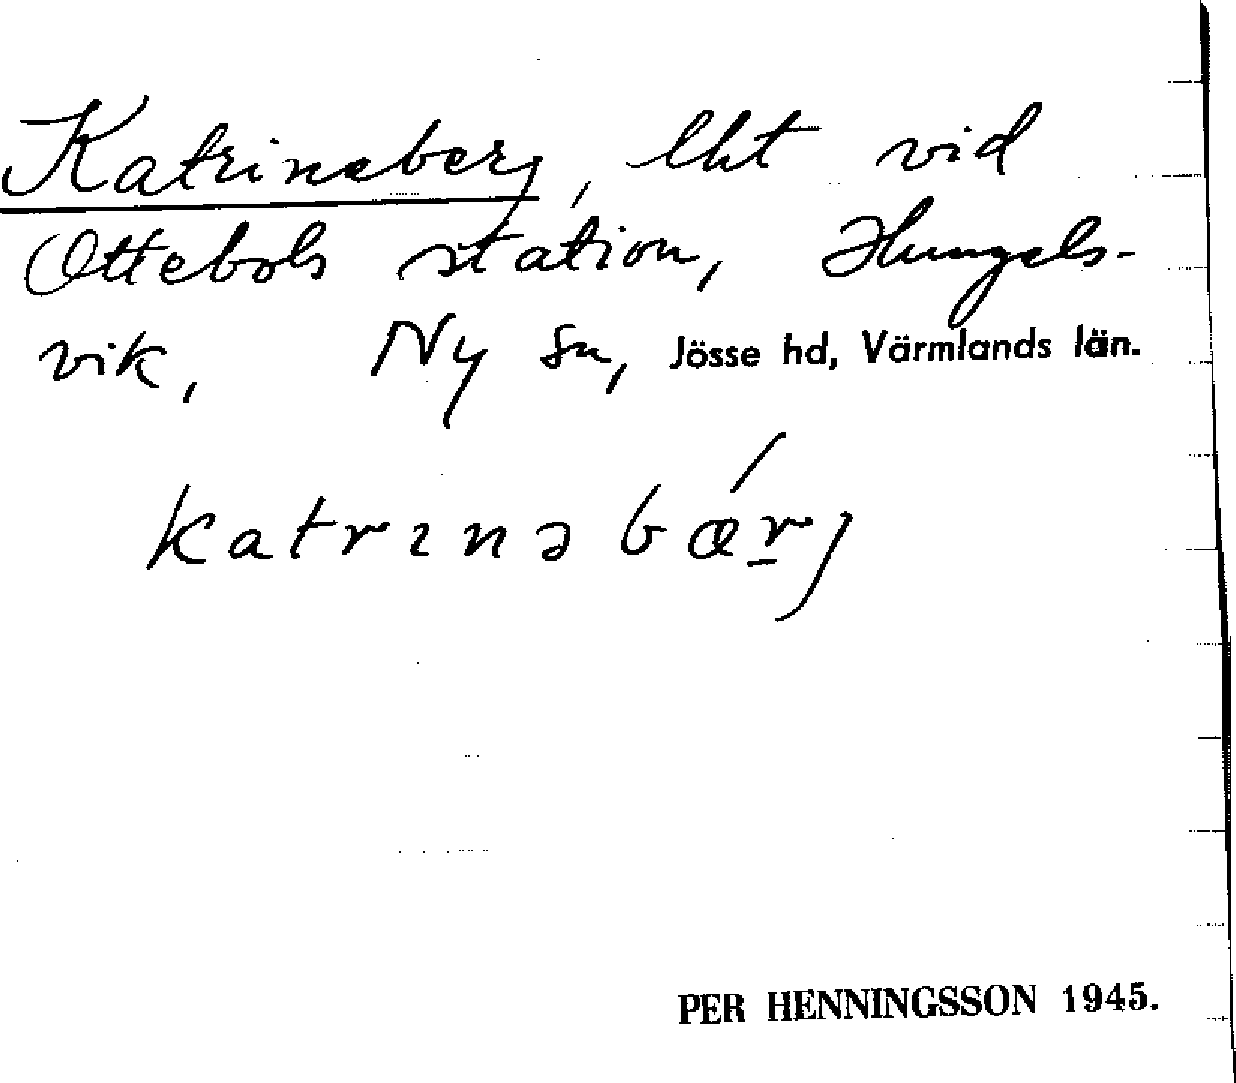 Katrineberg, lht vid
Ottebols station, Hungels-
vik, Ny sn, Jösse hd, Värmlands län.
katrınəbærj
PER HENNINGSSON 1945.